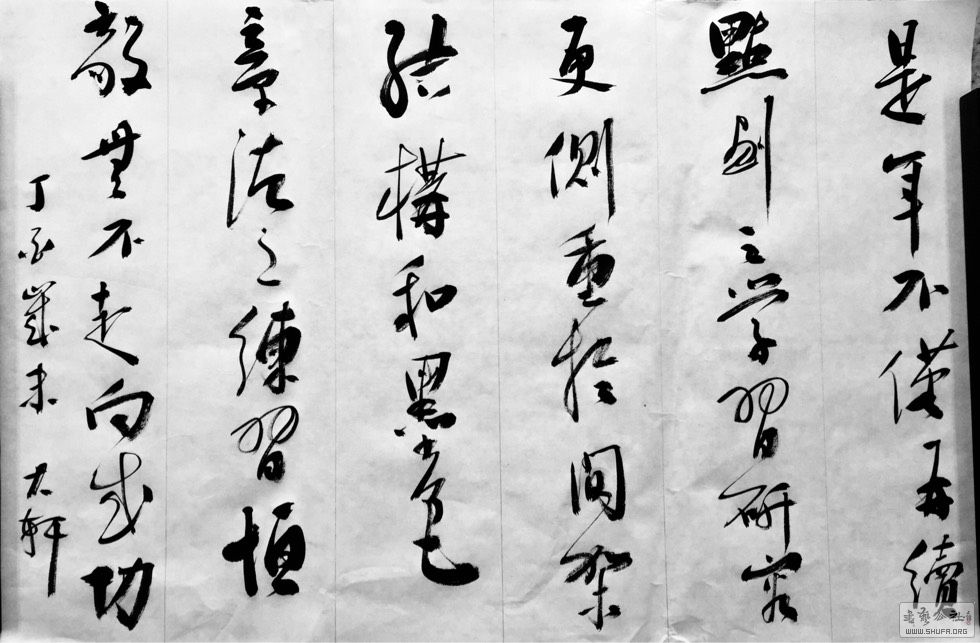 是年不僅再續
點划之学習研究
更側重於间架
結構和黑白
章法之練習恒
毅無不走向成功
丁酉歲末 友軒
書藝公社
WWW.SHUFA.ORG